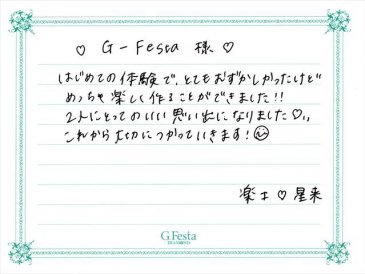 ♡ G-Festa 様 ♡
はじめての体験で、とてもおずかしかったけど
めっちゃ楽しく作ることができました!!
2人にとってのいい思い出になりました♡。
これから大切につかっていきます!☺
楽士♡星来
G.Festa
DIAMONDS